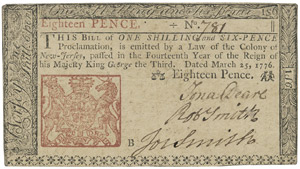 Eighteen PENCE. No. 781
THIS BILL of ONE SHILLING and SIX-PENCE
Proclamation, is emitted by a Law of the Colony of
New-Jersey, passed in the Fourteenth Year of the Reign of
his Majesty King George the Third. Dated March 25, 1776.
Eighteen Pence.
Jona Deare
Rob Smith
B Jos Smith